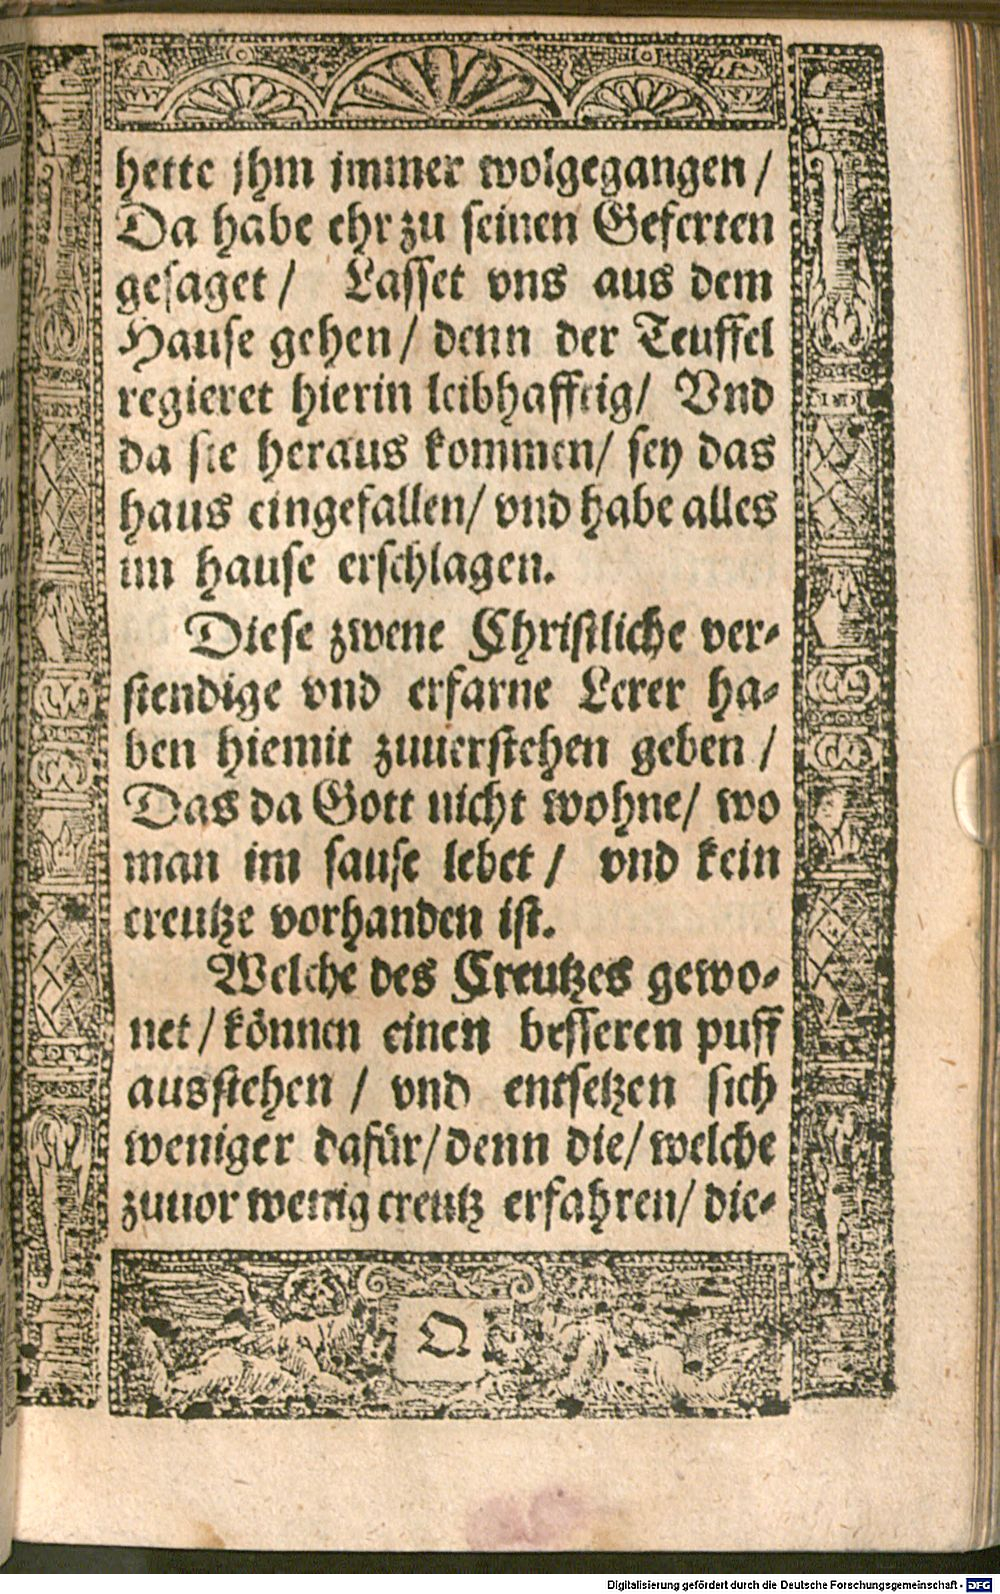 hette jhm jmmer wolgegangen /
Da habe ehr zu seinen Geferten
gesaget / Lasset vns aus dem
Hause gehen / denn der Teuffel
regieret hierin leibhafftig / Vnd
da sie heraus kommen / sey das
haus eingefallen / vnd habe alles
im hause erschlagen.
Diese zwene Christliche ver-
stendige vnd erfarne Lerer ha-
ben hiemit zuuerstehen geben /
Das da Gott nicht wohne / wo
man im sause lebet / vnd kein
creutze vorhanden ist.
Welche des Creutzes gewo-
net / können einen besseren puff
ausstehen / vnd entsetzen sich
weniger dafür / denn die / welche
zuuor wenig creutz erfahren / die-
O
Digitalisierung gefördert durch die Deutsche Forschungsgemeinschaft - DFG